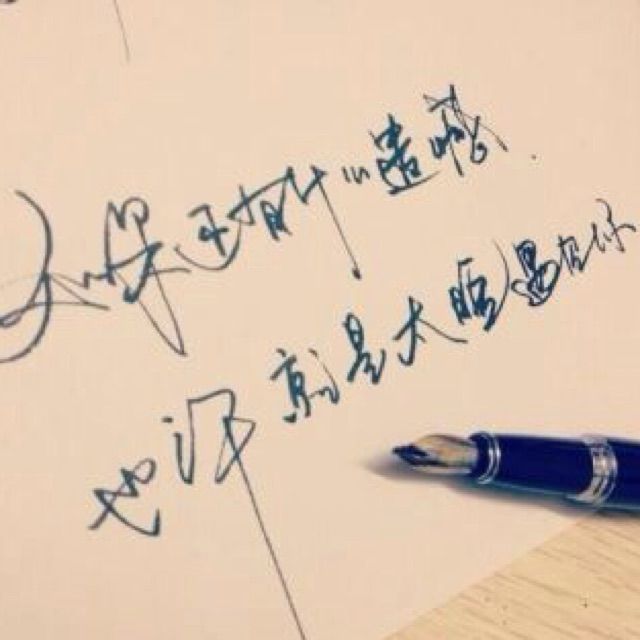 如果还有什么遗憾.
也许就是太晚遇见你